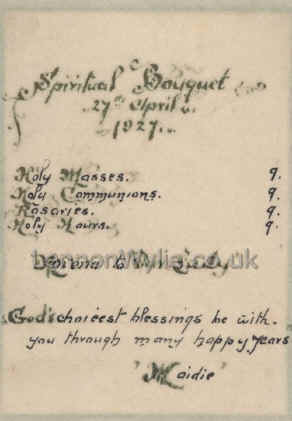 Spiritual Bouquet
27th April.
1927.
Holy Masses. 9.
Holy Communions. 9.
Rosaries. 9.
Holy Hours. 9.
LennonWylie.co.uk
to
God's choicest blessings be with
you through many happy years
"Maidie"